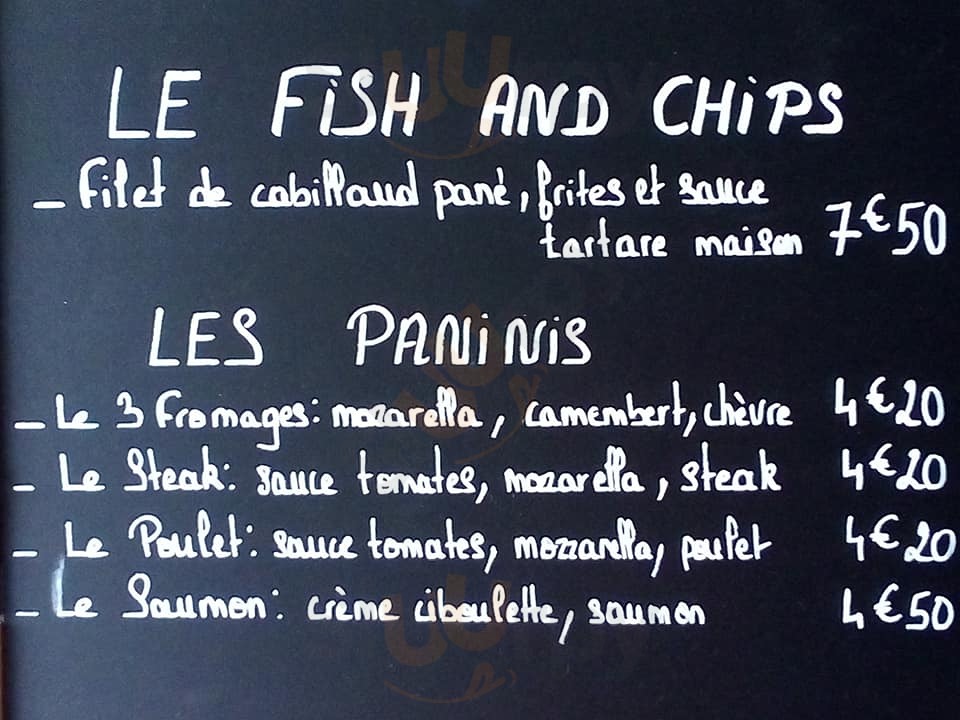 LE FiSH AND CHiPS
- Filet de cabillaud pané, frites et sauce
tartare maison 7€50
LES PANiNiS
- Le 3 Fromages: mozarella, camembert, chèvre 4€20
- Le Steak: sauce tomates, mozarella, steak 4€20
- Le Poulet: sauce tomates, mozzarella, poulet 4€20
- Le Saumon: crème ciboulette, saumon 4€50